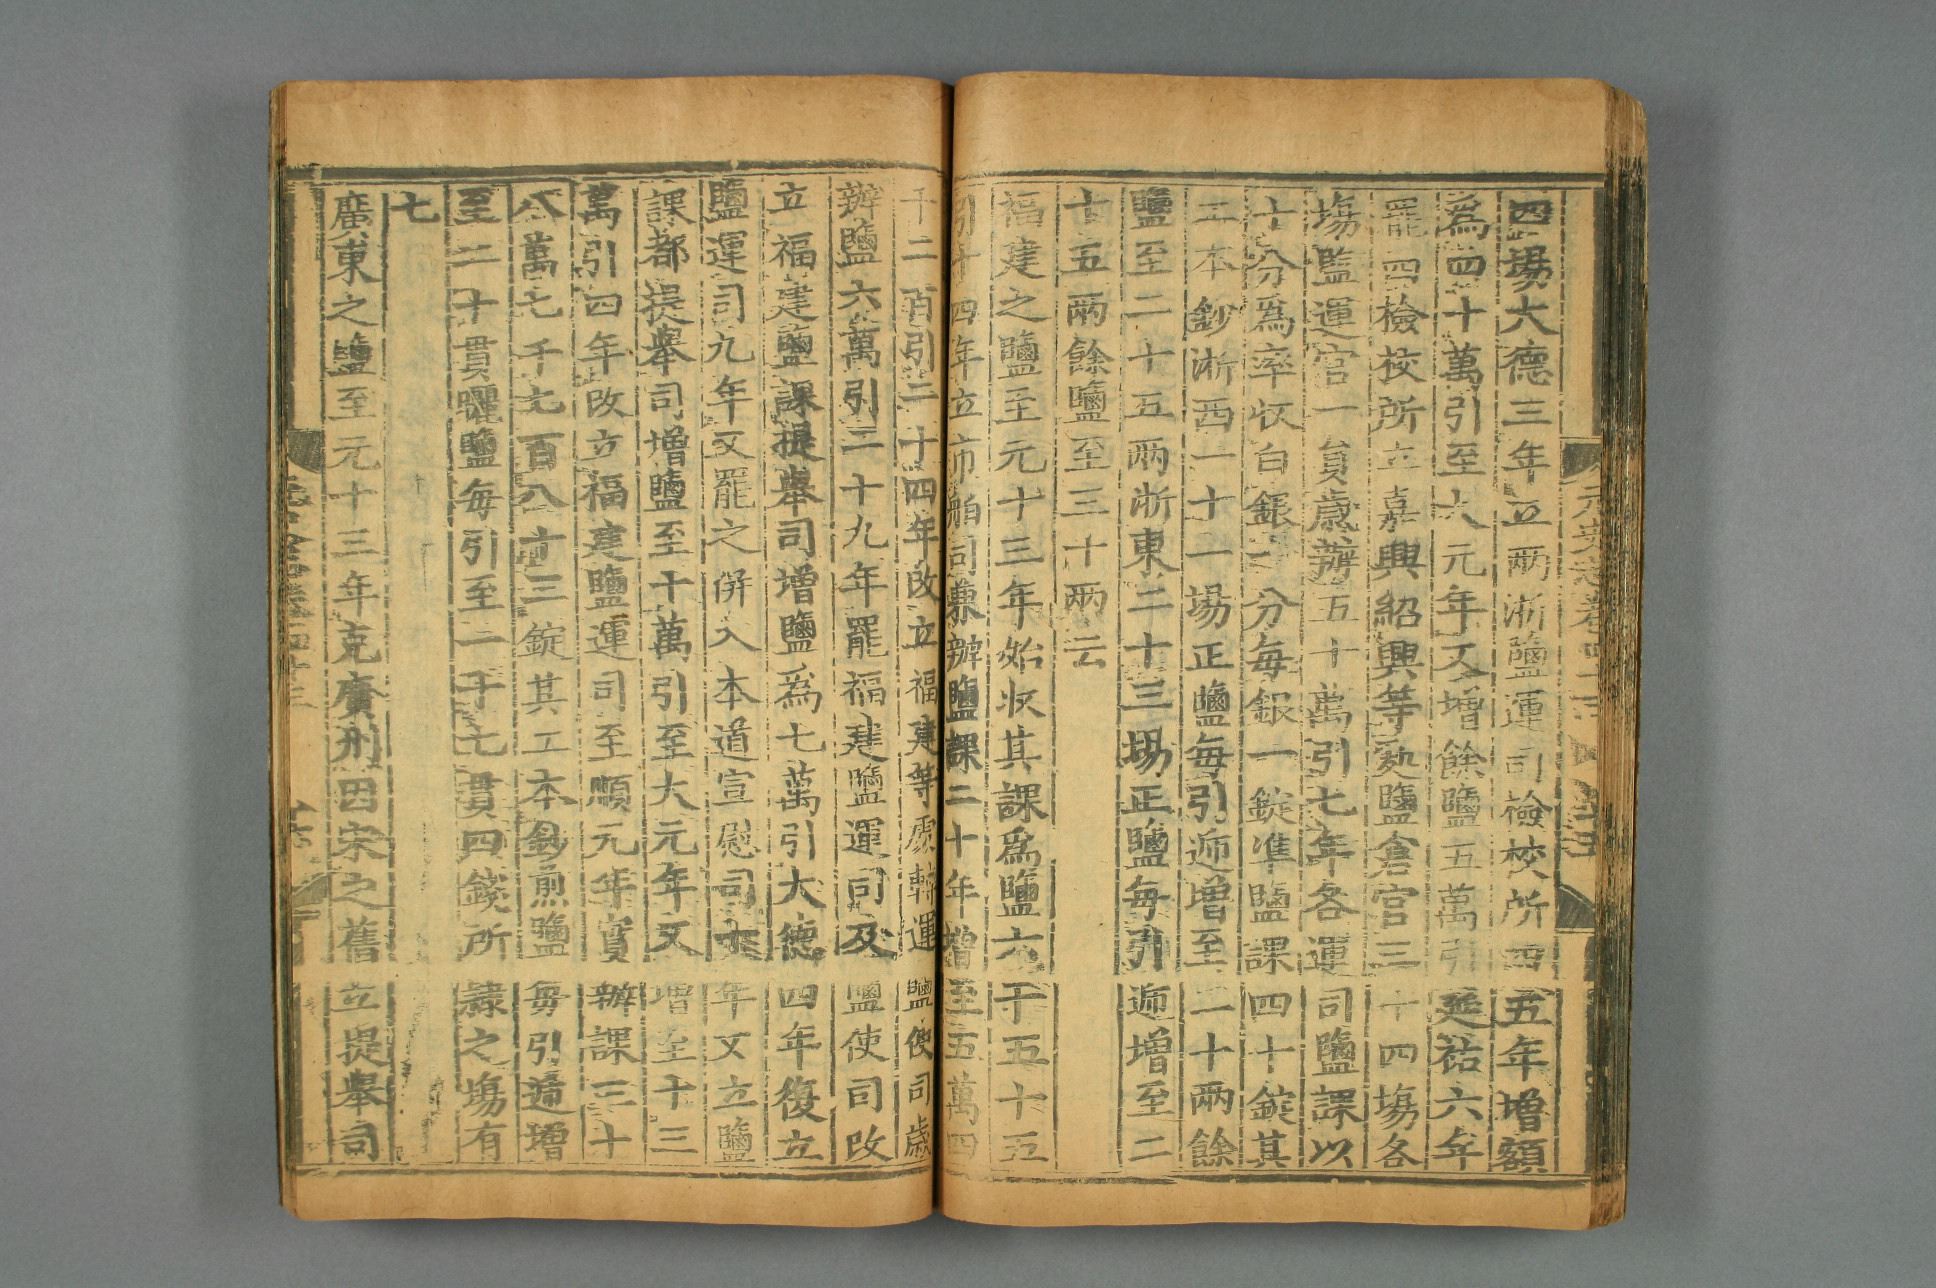 四場大德三年立兩浙鹽運司檢校所四五年增額
爲四十萬引至大元年又增餘鹽五萬引延祐六年
罷四檢校所立嘉興紹興等處鹽倉官三十四塲各
塲監運官一員歳辦五十萬引七年各運司鹽課以
十分爲率收白銀一分每銀一錠准鹽課四十錠其
工本鈔浙西一十一場正鹽每引遞增至二十兩餘
鹽至二十五兩浙東二十三場正鹽每引遞增至二
十五兩餘鹽至三十兩云
福建之鹽至元十三年始收其課爲鹽六千五十五
引十四年立市舶司兼辦鹽課二十年增至五萬四
千二百引二十四年改立福建等處轉運鹽使司歳
辦鹽六萬引二十九年罷福建鹽運司及鹽使司改
立福建鹽課提舉司增鹽爲七萬引大德四年復立
鹽運司九年又罷之併入本道宣慰司十年又立鹽
課都提舉司增鹽至十萬引至大元年又增至十三
萬引四年改立福建鹽運司至順元年實辦課三十
八萬七千七百八十三錠其工本鈔煎鹽每引遞增
至二十貫曬鹽每引至一十七貫四錢所隸之塲有
七
廣東之鹽至元十三年克廣州因宋之舊立提舉司